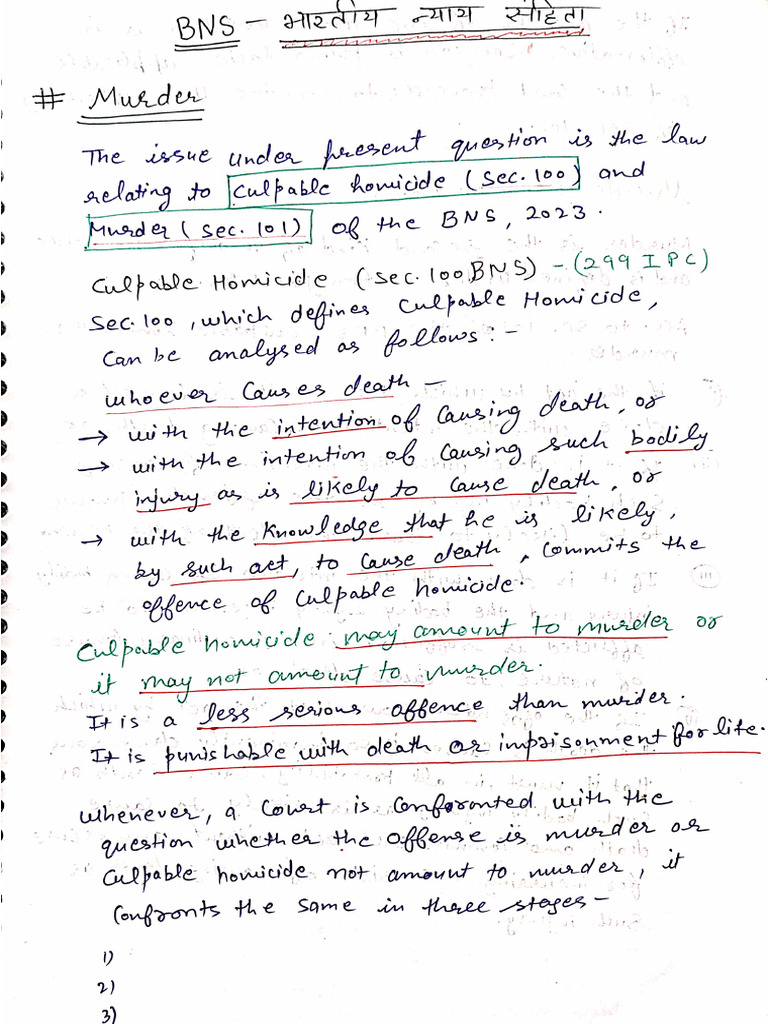 BNS - भारतीय न्याय संहिता
# Murder
The issue under present question is the law
relating to culpable homicide (Sec. 100) and
Murder (Sec. 101) of the BNS, 2023.
Culpable Homicide (Sec. 100 BNS) - (299 IPC)
Sec. 100, which defines Culpable Homicide,
can be analysed as follows:-
whoever causes death -
→ with the intention of causing death, or
→ with the intention of causing such bodily
injury as is likely to cause death, or
→ with the knowledge that he is likely,
by such act, to cause death, commits the
offence of culpable homicide.
Culpable homicide may amount to murder or
it may not amount to murder.
It is a less serious offence than murder.
It is punishable with death or imprisonment for life.
Whenever, a Court is conforonted with the
question whether the offense is murder or
culpable homicide not amount to murder, it
confronts the same in three stages -
1)
2)
3)